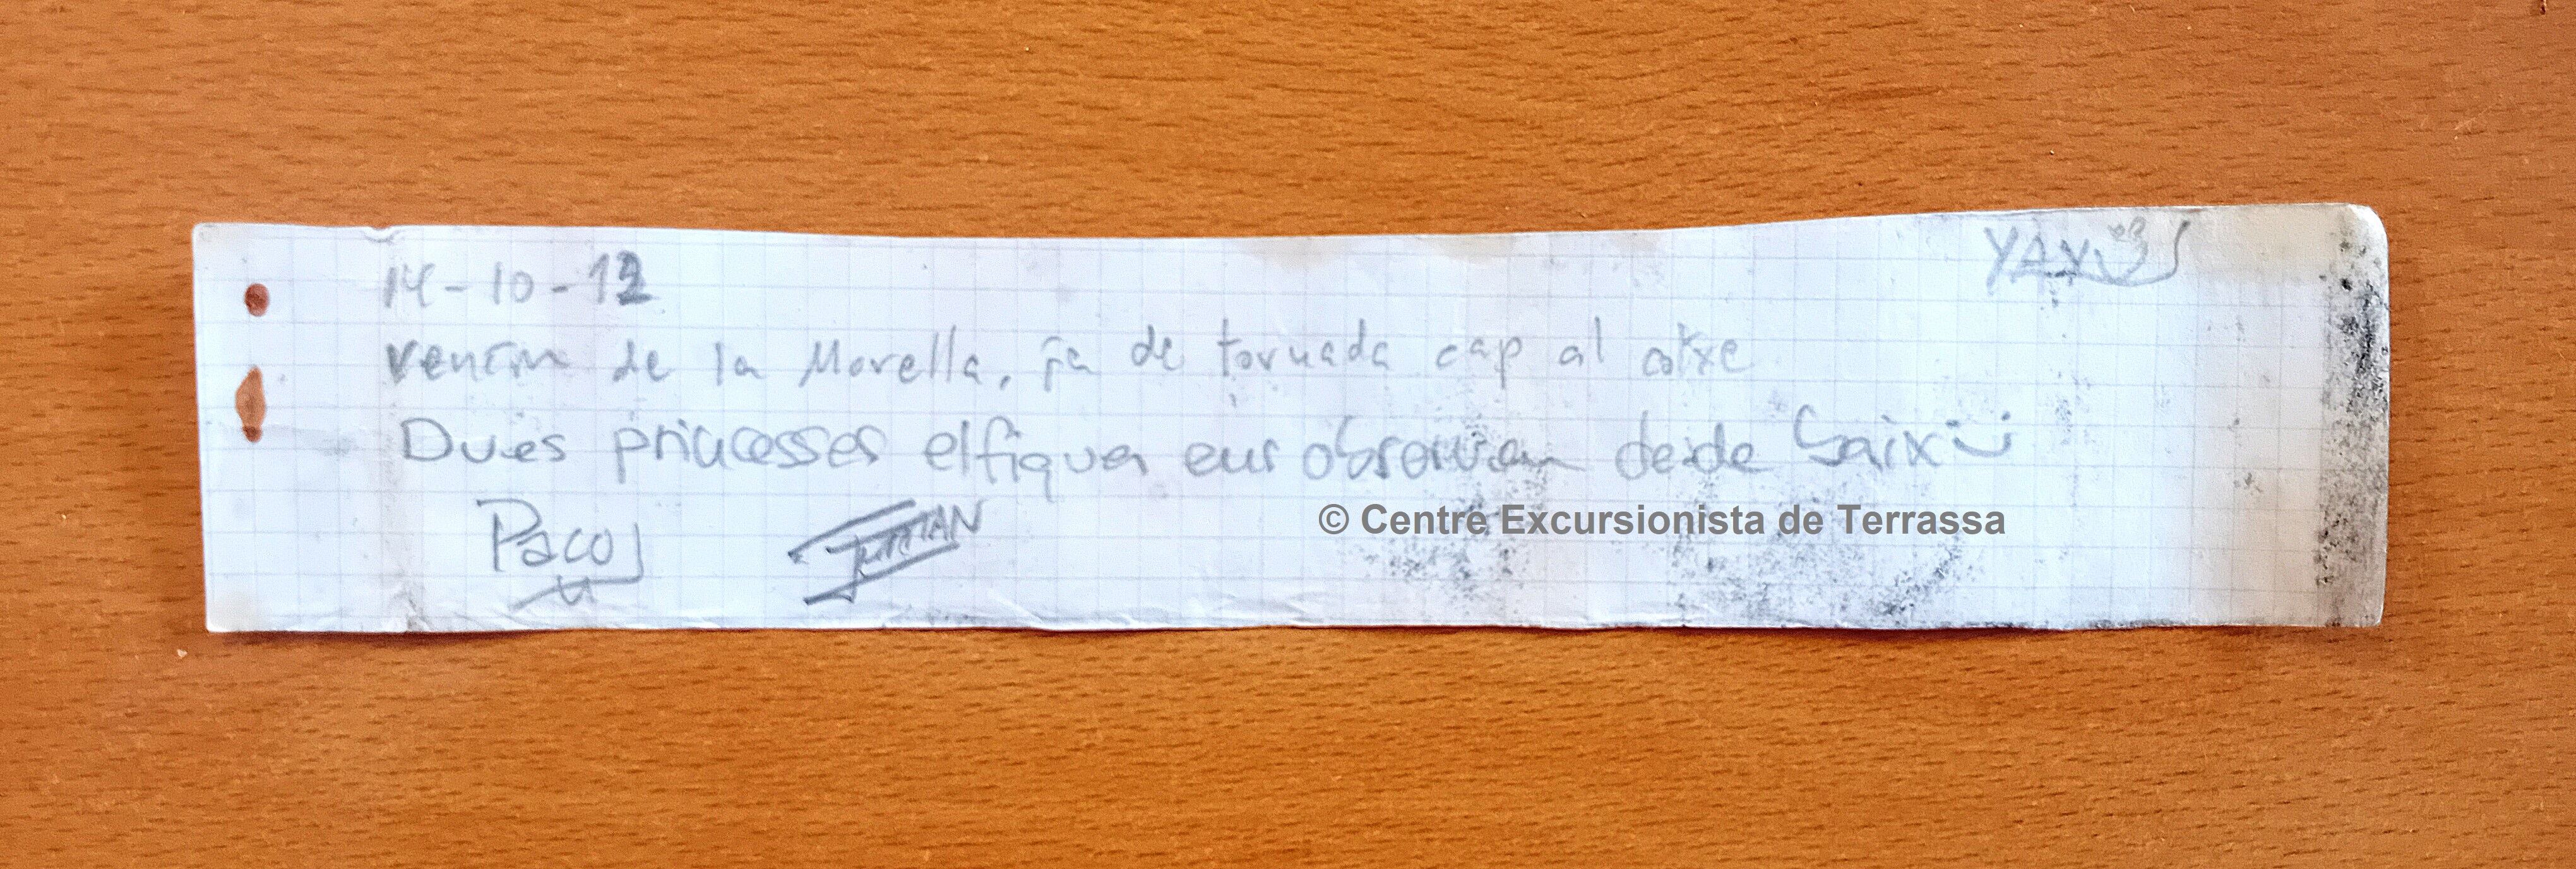 14-10-12
venim de la Morella, ja de tornada cap al cotxe
Dues princesses elfiques ens observen desde baix
Paco
© Centre Excursionista de Terrassa